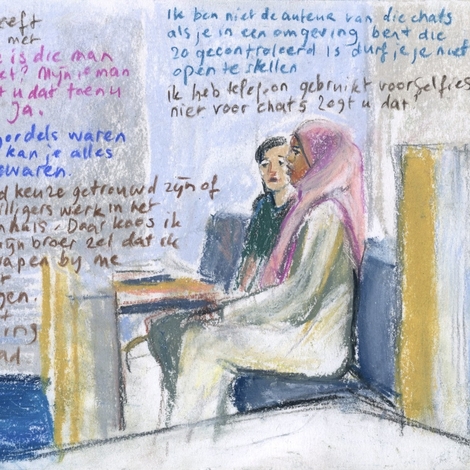 eeft
met
is die man
et? Mijn ie man
t u dat toen u
Ja.
ordels waren
kan je alles
swaren.
d keuze getrouwd zijn of
illigers werk in het
nhuis. Daar koos ik
ijn broer zei dat ik
apen by me
gen.
ing
ad
Ik ben niet de auteur van die chats
als je in een omgeving bent die
zo gecontroleerd is durf je je niet
open te stellen
ik heb telefoon gebruikt voor selfies
niet voor chats zegt u dat